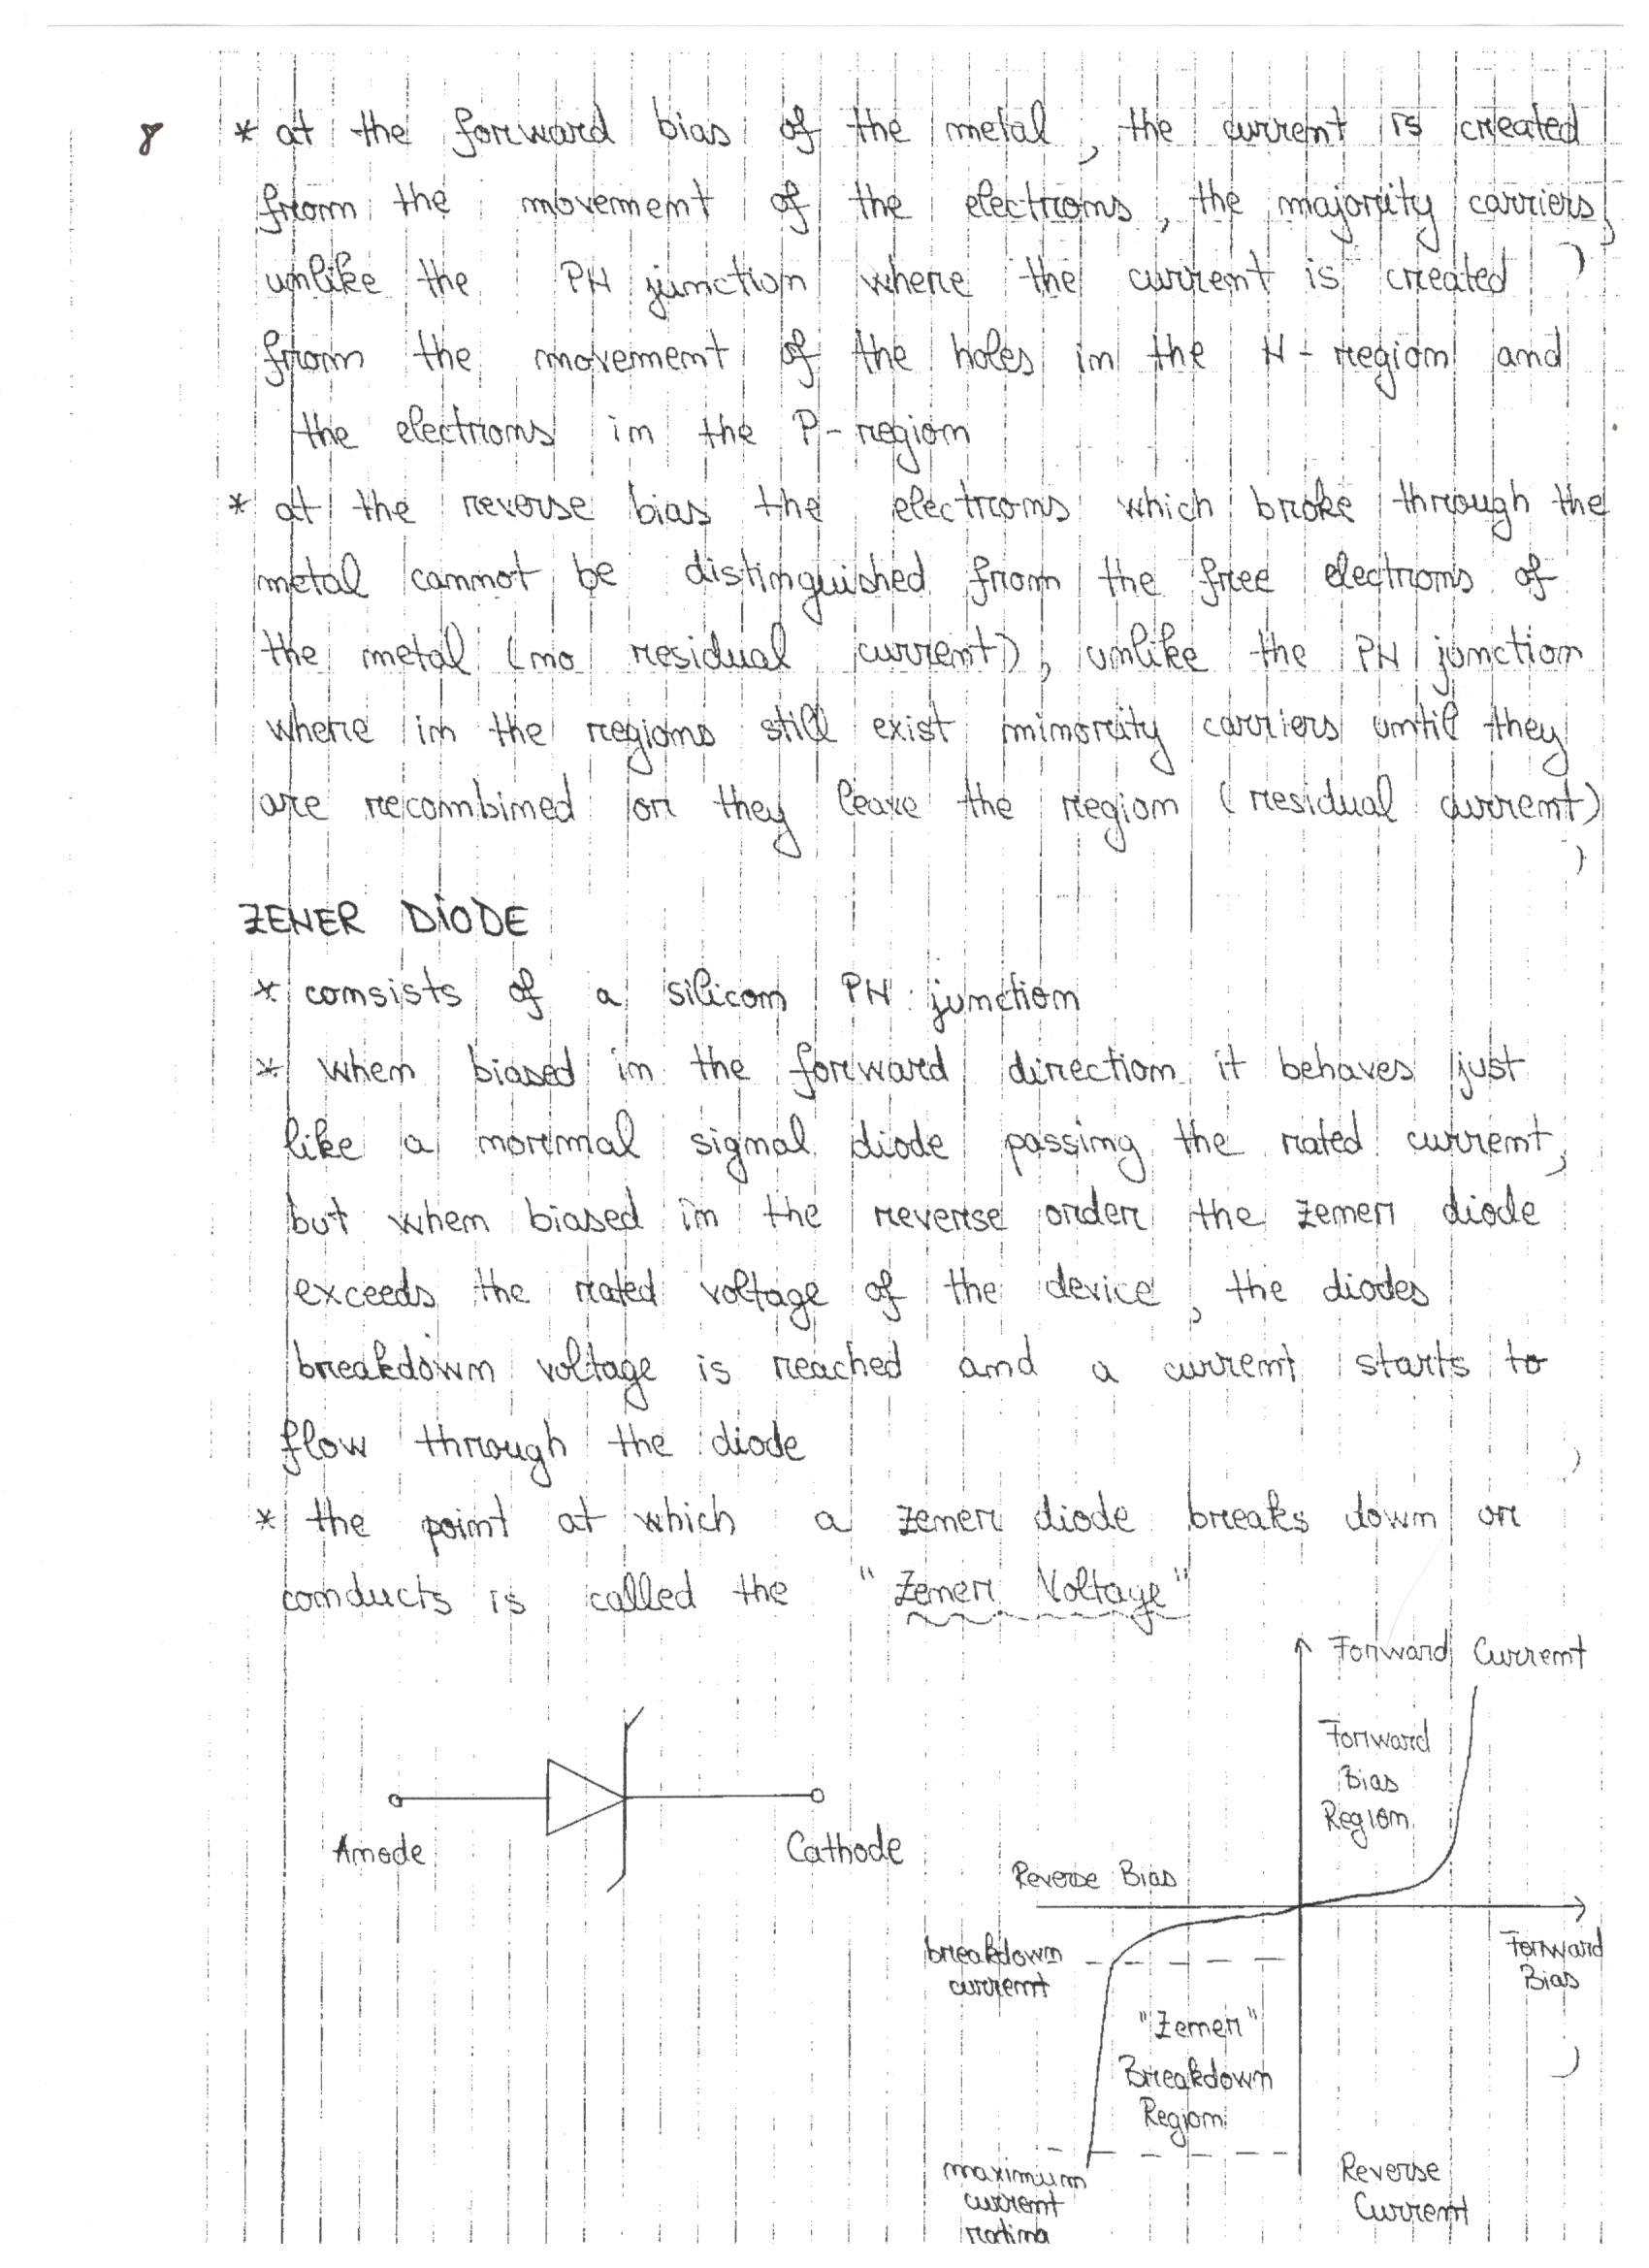 8
* at the forward bias of the metal, the current is created
from the movement of the electrons, the majority carriers,
unlike the PN junction where the current is created
from the movement of the holes in the N-region and
the electrons in the P-region
* at the reverse bias the electrons which broke through the
metal cannot be distinguished from the free electrons of
the metal (no residual current), unlike the PN junction
where in the regions still exist minority carriers until they
are recombined or they leave the region (residual current)
ZENER DIODE
* consists of a silicon PN junction
* when biased in the forward direction it behaves just
like a normal signal diode passing the rated current,
but when biased in the reverse order the zener diode
exceeds the rated voltage of the device, the diodes
breakdown voltage is reached and a current starts to
flow through the diode
* the point at which a zener diode breaks down or
conducts is called the "Zener Voltage"
Anode
Cathode
Forward Current
Forward
Bias
Region
Reverse Bias
Forward
Bias
breakdown
current
"Zener"
Breakdown
Region
maximum
current
rating
Reverse
Current